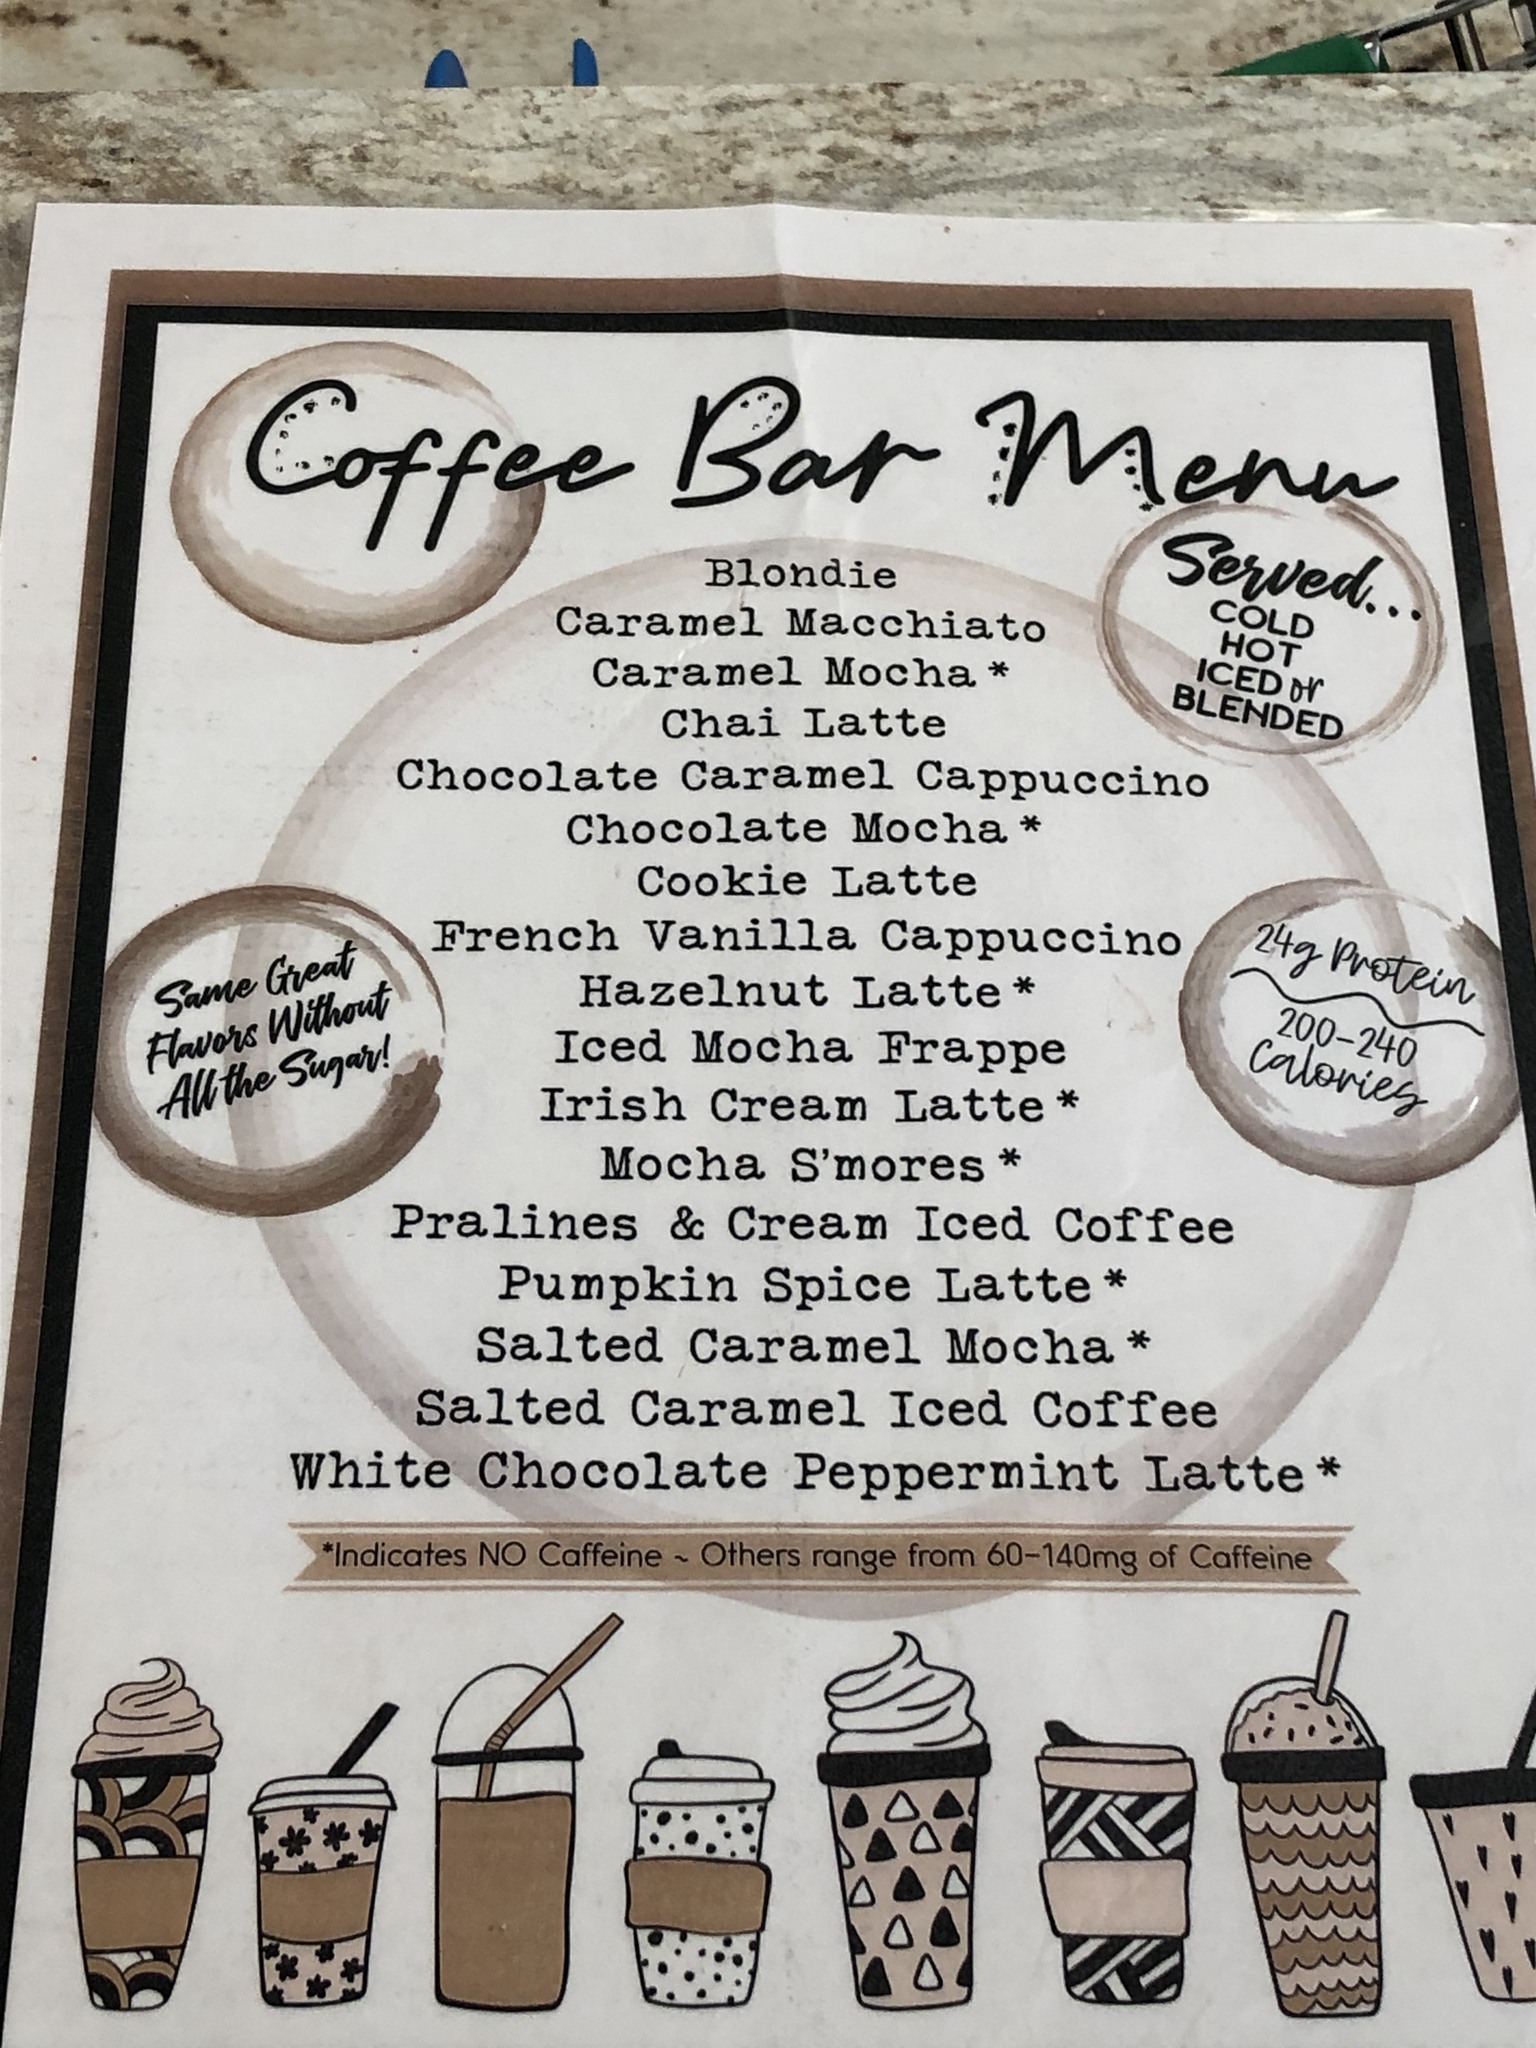 Coffee Bar Menu
Served...
COLD
HOT
ICED or
BLENDED
Blondie
Caramel Macchiato
Caramel Mocha *
Chai Latte
Chocolate Caramel Cappuccino
Chocolate Mocha *
Cookie Latte
French Vanilla Cappuccino
Hazelnut Latte *
Iced Mocha Frappe
Irish Cream Latte *
Mocha S'mores *
Pralines & Cream Iced Coffee
Pumpkin Spice Latte *
Salted Caramel Mocha *
Salted Caramel Iced Coffee
White Chocolate Peppermint Latte *
Same Great
Flavors Without
All the Sugar!
24g Protein
200-240
Calories
*Indicates NO Caffeine ~ Others range from 60-140mg of Caffeine